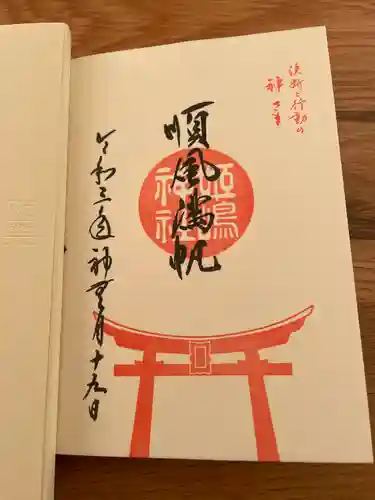 決断と行動の
神さま
順風満帆
姫嶋
神社
令和三年神無月十九日